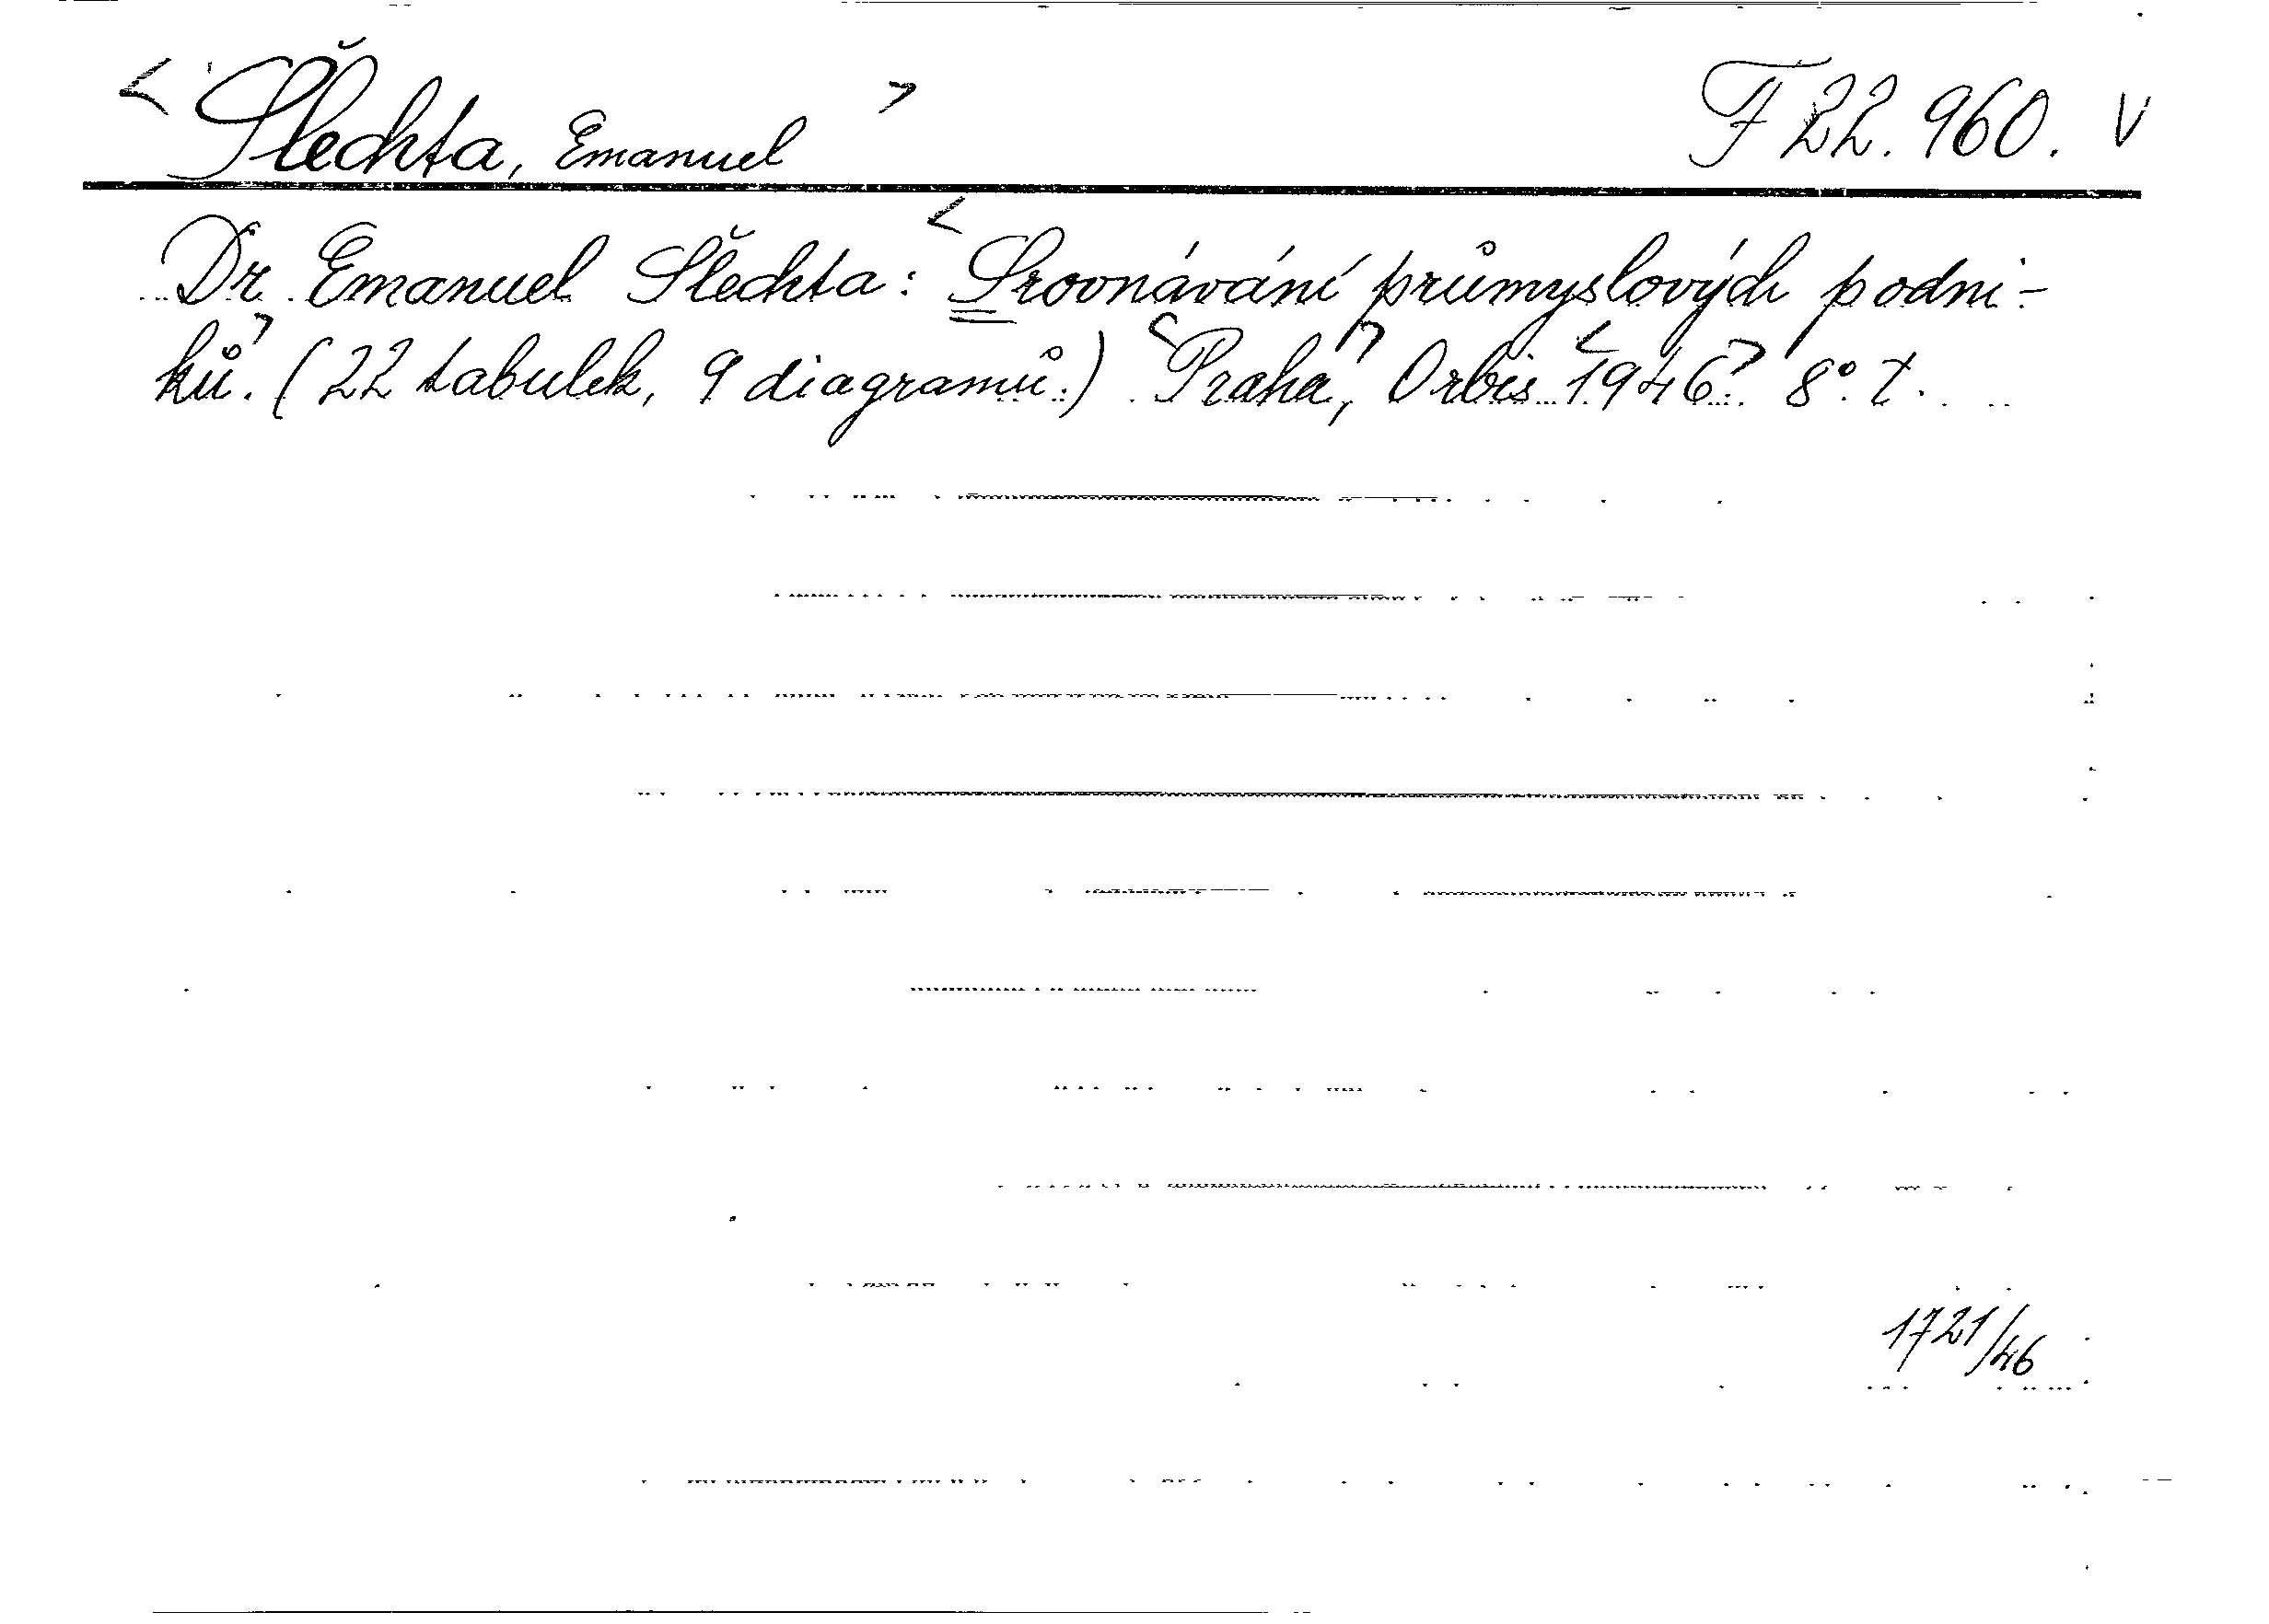 <Šlechta, Emanuel> F 22.960. V
Dr Emanuel Šlechta: <Srovnávání průmyslových podni-
ků>. (22 tabulek, 9 diagramů.) <Praha>, Orbis <1946>. 8°. t.
1721/46